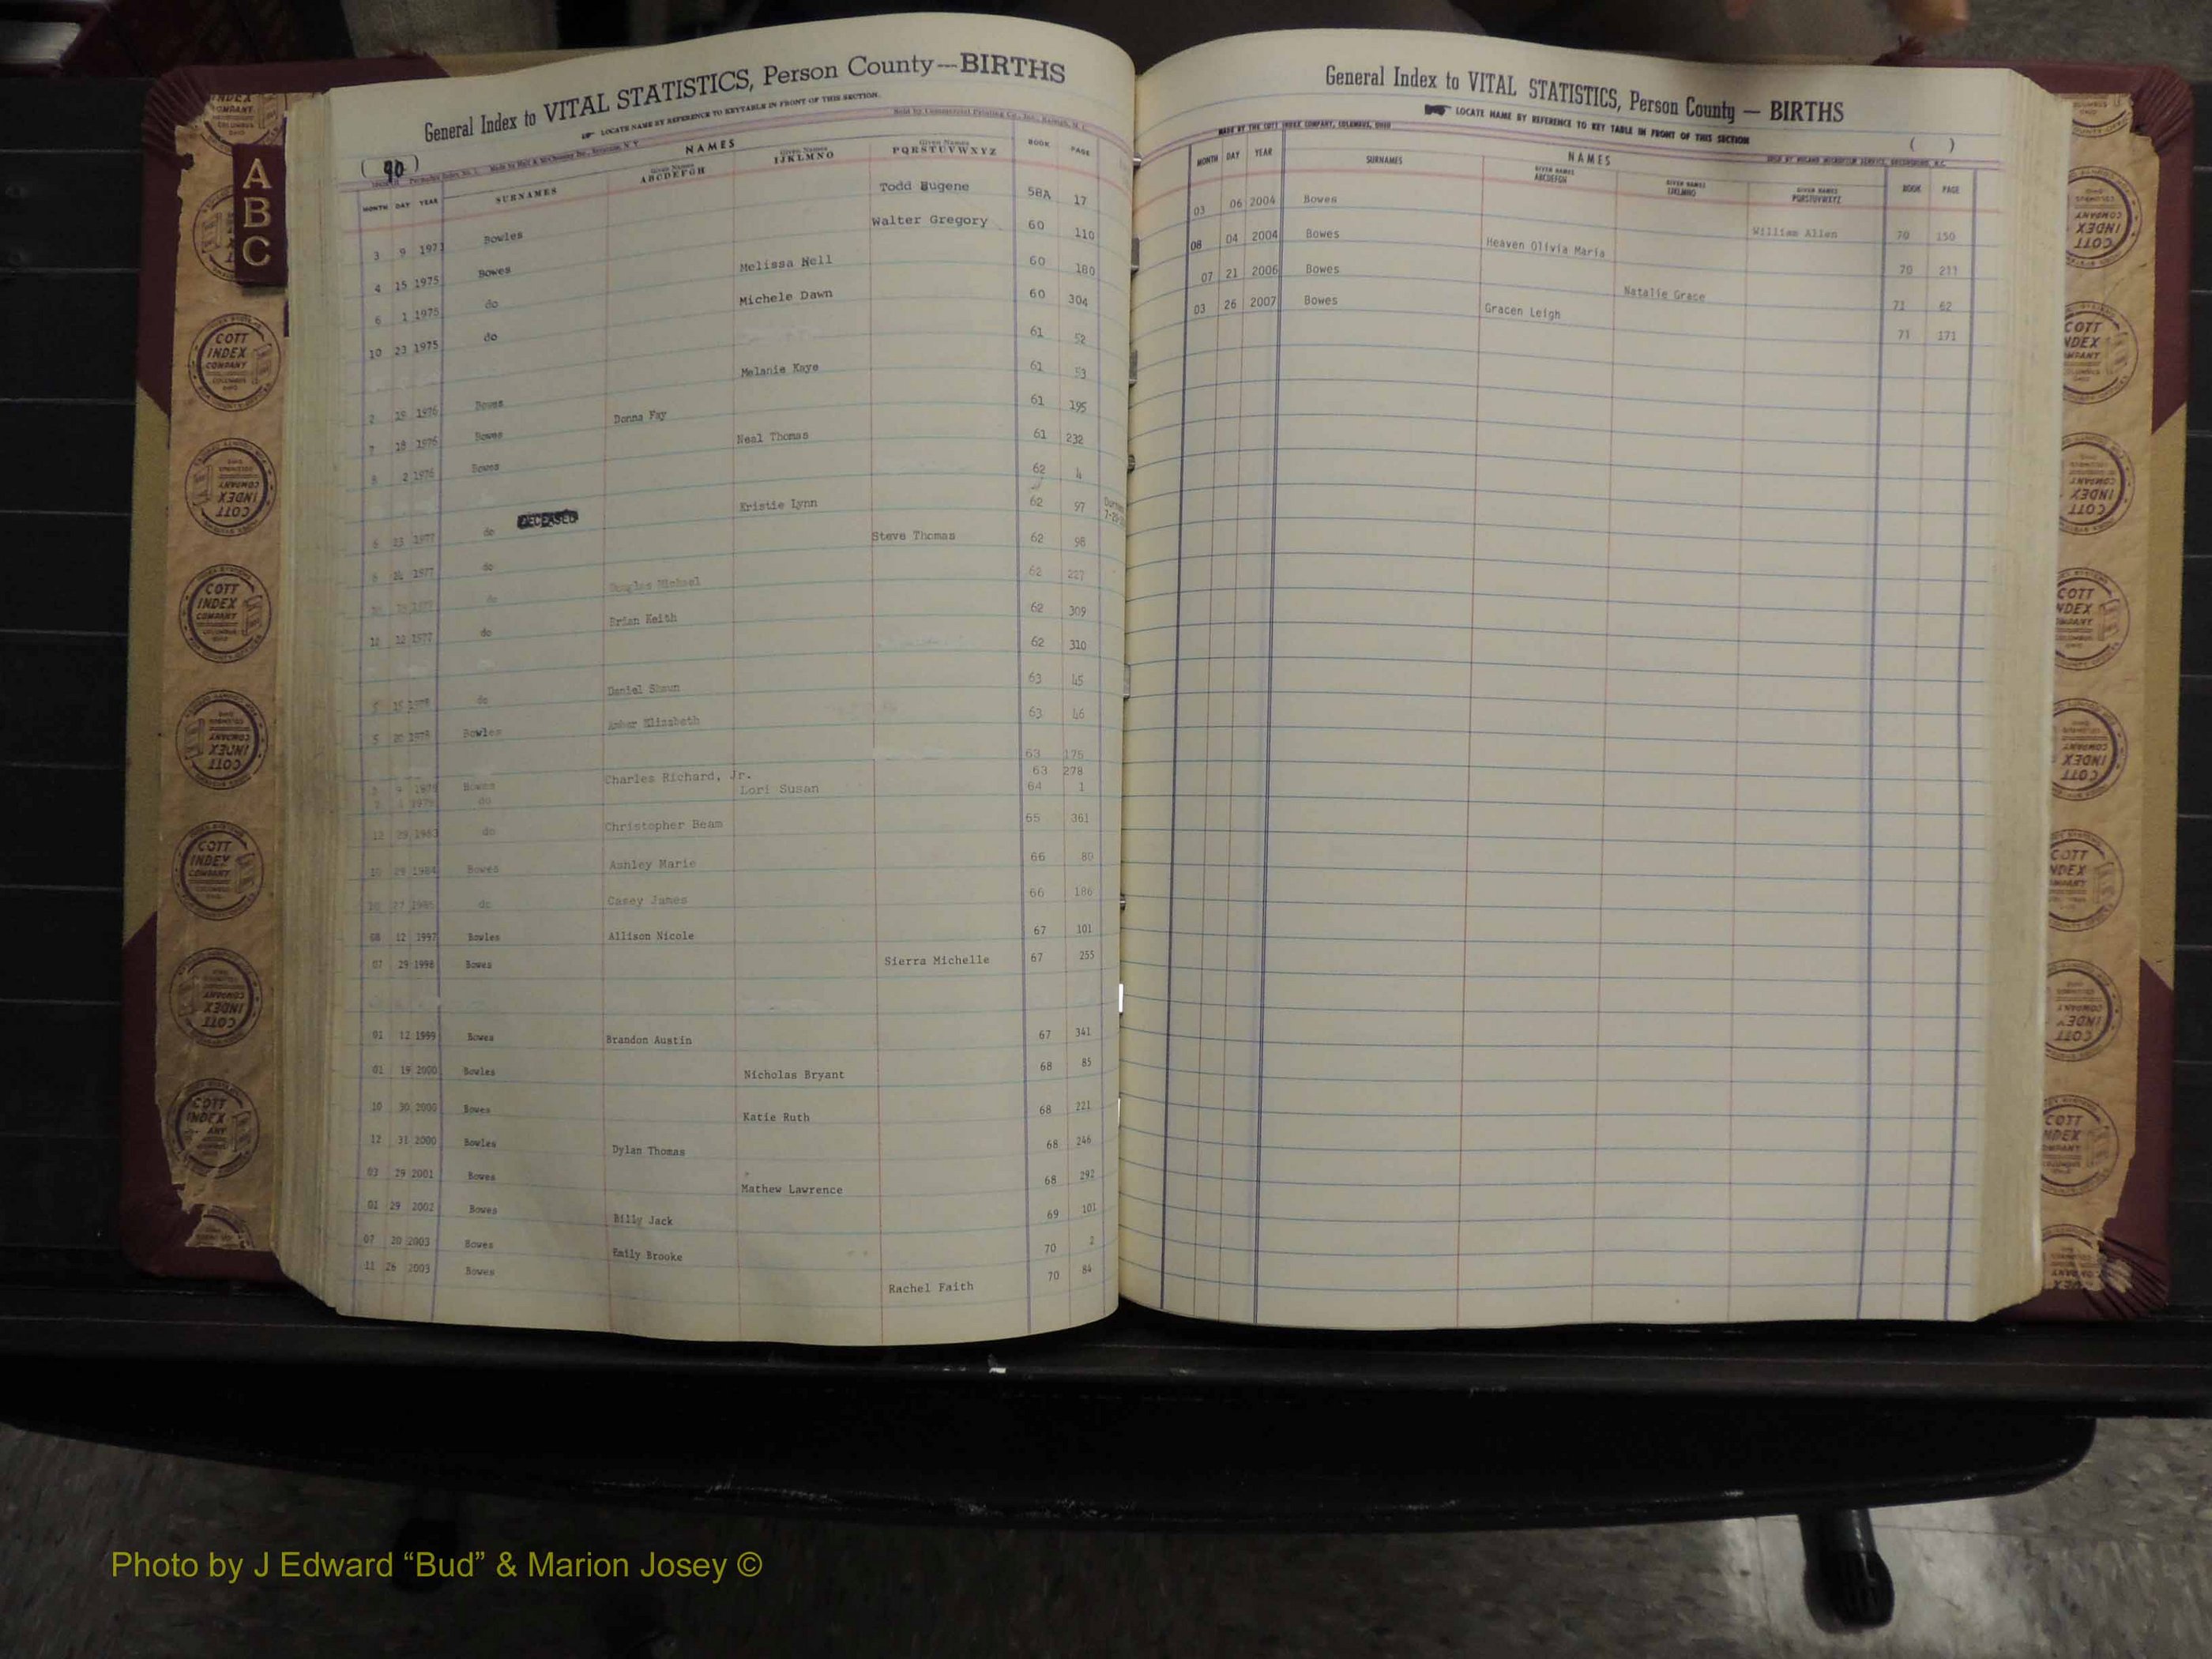 General Index to VITAL STATISTICS, Person County—BIRTHS
LOCATE NAME BY REFERENCE TO KEYTABLE IN FRONT OF THIS SECTION.
Sold by Commercial Printing Co., Inc., Raleigh, N. C.
( 90 )
NAMES
MONTH DAY YEAR SURNAMES Given Names ABCDEFGH Given Names IJKLMNO Given Names PQRSTUVWXYZ BOOK PAGE
3 9 1973 Bowles Todd Eugene 58A 17
4 15 1975 Bowes Walter Gregory 60 110
6 1 1975 do Melissa Nell 60 180
10 23 1975 do Michele Dawn 60 304
61 52
2 19 1976 Bowes Melanie Kaye 61 53
7 18 1976 Bowes Donna Fay 61 195
8 2 1976 Bowes Neal Thomas 61 232
62 4
6 23 1977 do DECEASED Kristie Lynn 62 97
6 24 1977 do Steve Thomas 62 98
do Douglas Michael 62 227
12 12 1977 do Brian Keith 62 309
62 310
5 15 1978 do Daniel Shaun 63 45
5 20 1978 Bowles Amber Elizabeth 63 46
63 175
Bowes Charles Richard, Jr. 63 278
do Lori Susan 64 1
12 29 1983 do Christopher Beam 65 361
10 29 1984 Bowes Ashley Marie 66 80
do Casey James 66 186
08 12 1997 Bowles Allison Nicole 67 101
07 29 1998 Bowes Sierra Michelle 67 255
01 12 1999 Bowes Brandon Austin 67 341
01 19 2000 Bowles Nicholas Bryant 68 85
10 30 2000 Bowes Katie Ruth 68 221
12 31 2000 Bowles Dylan Thomas 68 246
03 29 2001 Bowes Mathew Lawrence 68 292
01 29 2002 Bowes Billy Jack 69 101
07 20 2003 Bowes Emily Brooke 70 2
11 26 2003 Bowes Rachel Faith 70 84
A
B
C
General Index to VITAL STATISTICS, Person County — BIRTHS
LOCATE NAME BY REFERENCE TO KEY TABLE IN FRONT OF THIS SECTION
( )
MADE BY THE COTT INDEX COMPANY, COLUMBUS, OHIO
NAMES
MONTH DAY YEAR SURNAMES GIVEN NAMES ABCDEFGH GIVEN NAMES IJKLMNO GIVEN NAMES PQRSTUVWXYZ BOOK PAGE
03 06 2004 Bowes William Allen 70 150
08 04 2004 Bowes Heaven Olivia Maria 70 211
07 21 2006 Bowes Natalie Grace 71 62
03 26 2007 Bowes Gracen Leigh 71 171
COTT INDEX COMPANY
Photo by J Edward “Bud” & Marion Josey ©